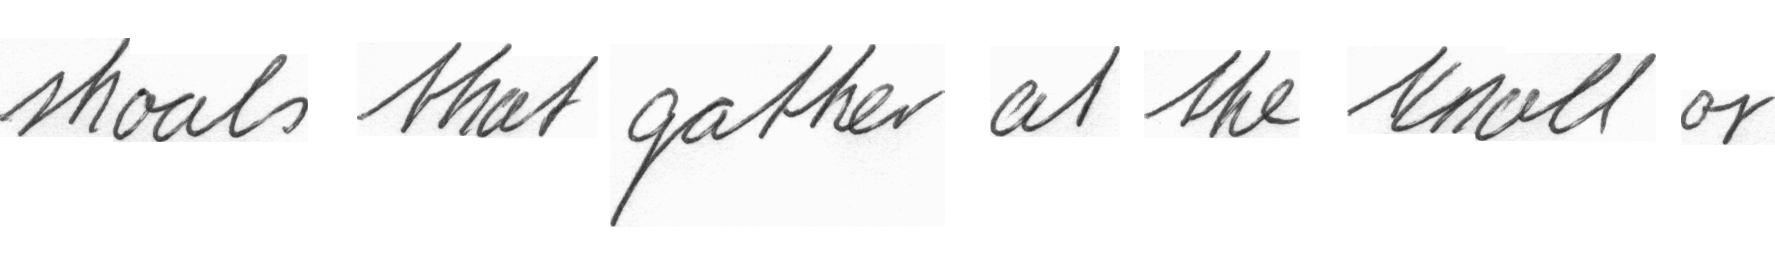 shoals that gather at the knoll or